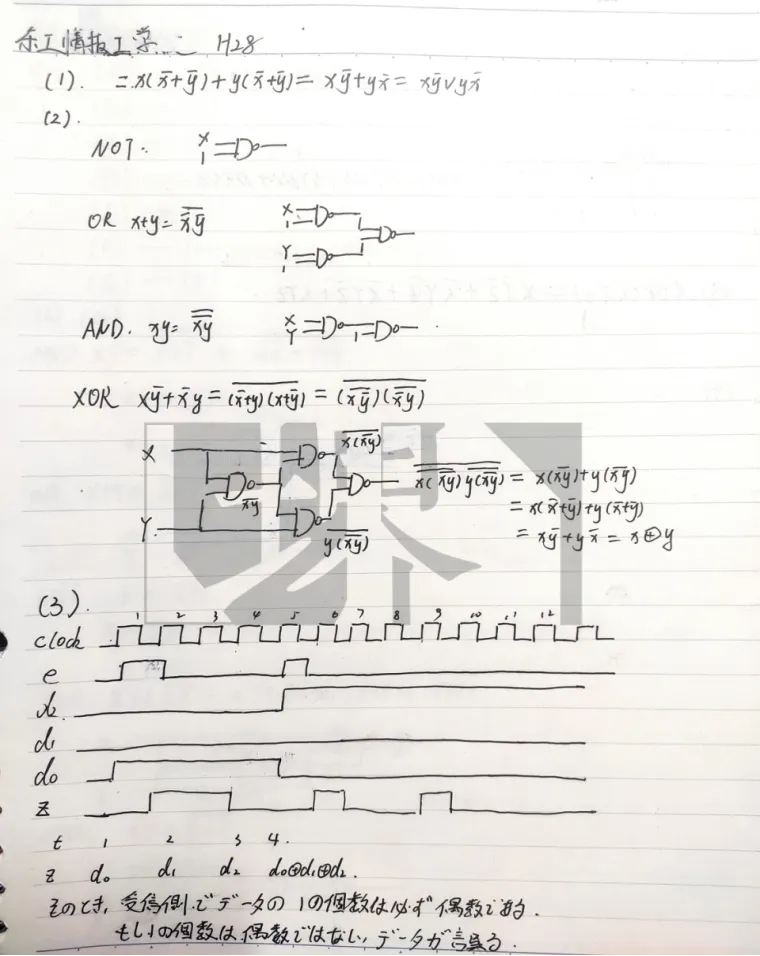 东工情报工学 H28
(1). = x(x̄+ȳ)+y(x̄+ȳ)= xȳ+yx̄= xȳ∨yx̄
(2).
NOT. X 1
OR x+y= \overline{x̄ȳ} X 1 Y 1
AND. xy= \overline{\overline{xy}} X Y 1
XOR xȳ+x̄y = \overline{(x̄+y)(x+ȳ)} = \overline{(\overline{xȳ})(\overline{x̄y})}
X \overline{x(\overline{xy})}
\overline{xy} \overline{\overline{x(\overline{xy})} \overline{y(\overline{xy})}} = x(\overline{xy})+y(\overline{xy})
= x(x̄+ȳ)+y(x̄+ȳ)
Y. \overline{y(\overline{xy})} = xȳ+yx̄ = x⊕y
(3).
clock 1 2 3 4 5 6 7 8 9 10 11 12
e
d2
d1
d0
z
t 1 2 3 4.
z d0 d1 d2 d0⊕d1⊕d2.
そのとき, 受信側でデータの1の個数は必ず偶数である.
もし1の個数は偶数ではない, データが誤る.